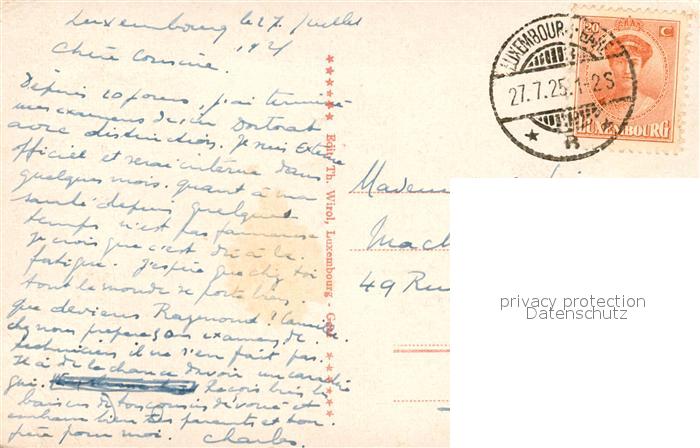 Luxembourg le 27 juillet
1925
Chère Cousine.
Depuis 10 jours, j'ai terminé
mes examens de 1er Doctorat
avec distinction. Je suis Externe
officiel et serai interne dans
quelques mois. quant à ma
santé depuis quelque
temps n'est pas fameuse
je crois que c'est dû à la
fatigue. J'espère que chez toi
tout le monde se porte bien.
que deviens Raymond? Camille
chez nous prépare son examen de
technicien il ne s'en fait pas.
Il a de la chance d'avoir un caractère
gai. Reçois les
baisers de ton cousin dévoué et
embrasse bien tes parents et ton
père pour moi. Charles.
Edit. Th. Wirol, Luxembourg - Gare
LUXEMBOURG-GARE
27.7.25.1-2S
B
20
C
LUXEMBOURG
Madem
Mach
49 Ru
privacy protection
Datenschutz